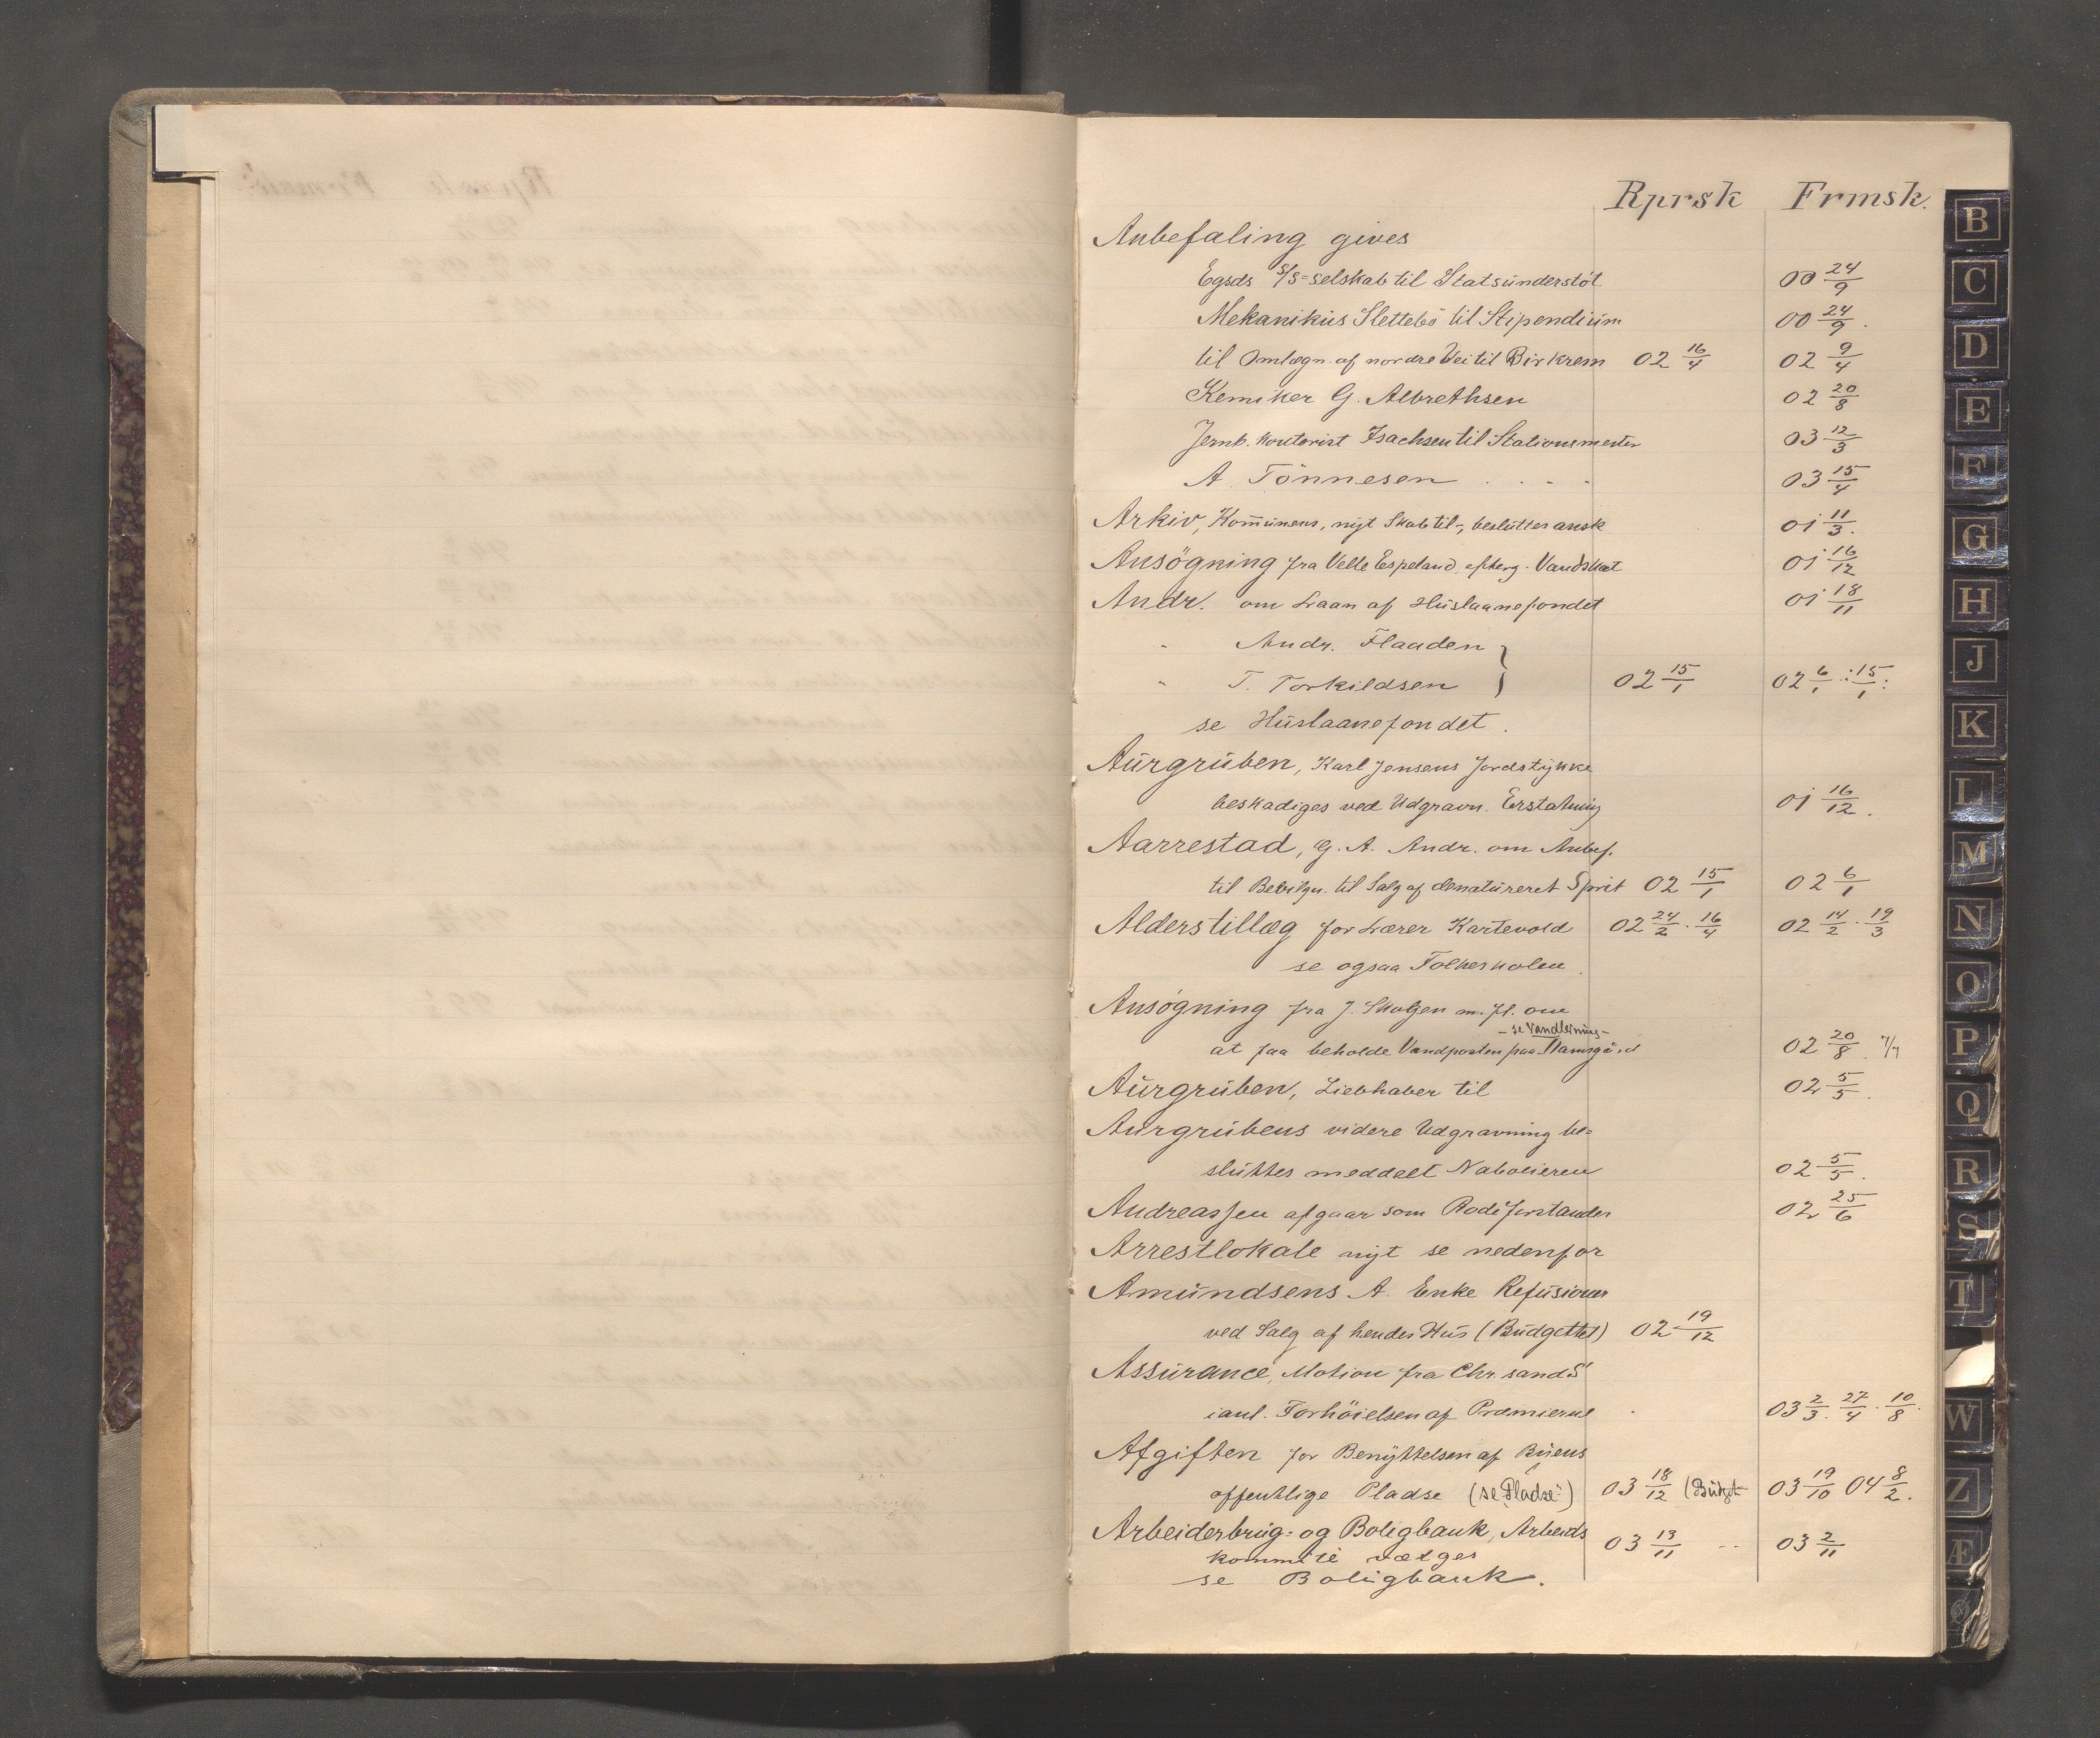 Rprsk Frmsk.
Anbefaling gives
Egsds S/S=selskab til Statsunderstöt. 00 24/9
Mekanikus Slettebö til Stipendium 00 24/9.
til Omlægn. af nordre Vei til Birkrem 02 16/4 02 9/4
Kemiker G. Albrethsen 02 20/8
Jernb. kontorist Isachsen til Stationsmester 03 12/3
A. Tönnesen . . - - 03 15/4
Arkiv, Kommunens, nyt Skab til-, beslutter ansk 01 11/3.
Ansögning fra Velle Espeland, efterg. Vandskat 01 16/12
Andr. om Laan af Huslaanefondet 01 18/11
" Andr. Flaaden }
" T. Torkildsen } 02 15/1 02 6/1 : 15/1 :
se Huslaanefondet.
Aurgruben, Karl Jensens Jordstykke
beskadiges ved Udgravn. Erstatning 01 16/12.
Aarrestad, G. A. Andr. om Anbef.
til Bevilgn. til Salg af denatureret Sprit 02 15/1 02 6/1
Alderstillæg for Lærer Kartevold 02 24/2 . 16/4 02 14/2 . 19/3
se ogsaa Folkeskolen.
Ansögning fra J. Skolgen m. fl. om
- se Vandledning -
at faa beholde Vandposten paa Damsgård 02 20/8.
Aurgruben, Liebhaber til 02 5/5.
Aurgrubens videre Udgravning be=
sluttes meddelt Naboeieren 02 5/5.
Andreassen afgaar som Rodeforstander 02 25/6
Arrestlokale nyt se nedenfor
Amundsens A. Enke Refusioner
ved Salg af hendes Hus (Budgettet) 02 19/12
Assurance, Motion fra Chr.sand S
ianl. Forhöielsen af Præmierne 03 2/3. 27/4. 10/8.
Afgiften for Benyttelsen af Byens
offentlige Pladse (se "Pladse") 03 18/12 (Budget 03 19/10 04 8/2.
Arbeiderbrug- og Boligbank, Arbeids 03 13/11 -- 03 2/11
kommité vælges
se Boligbank.
B
C
D
E
F
G
H
J
K
L
M
N
O
P
Q
R
S
T
W
Z
Æ
Ø